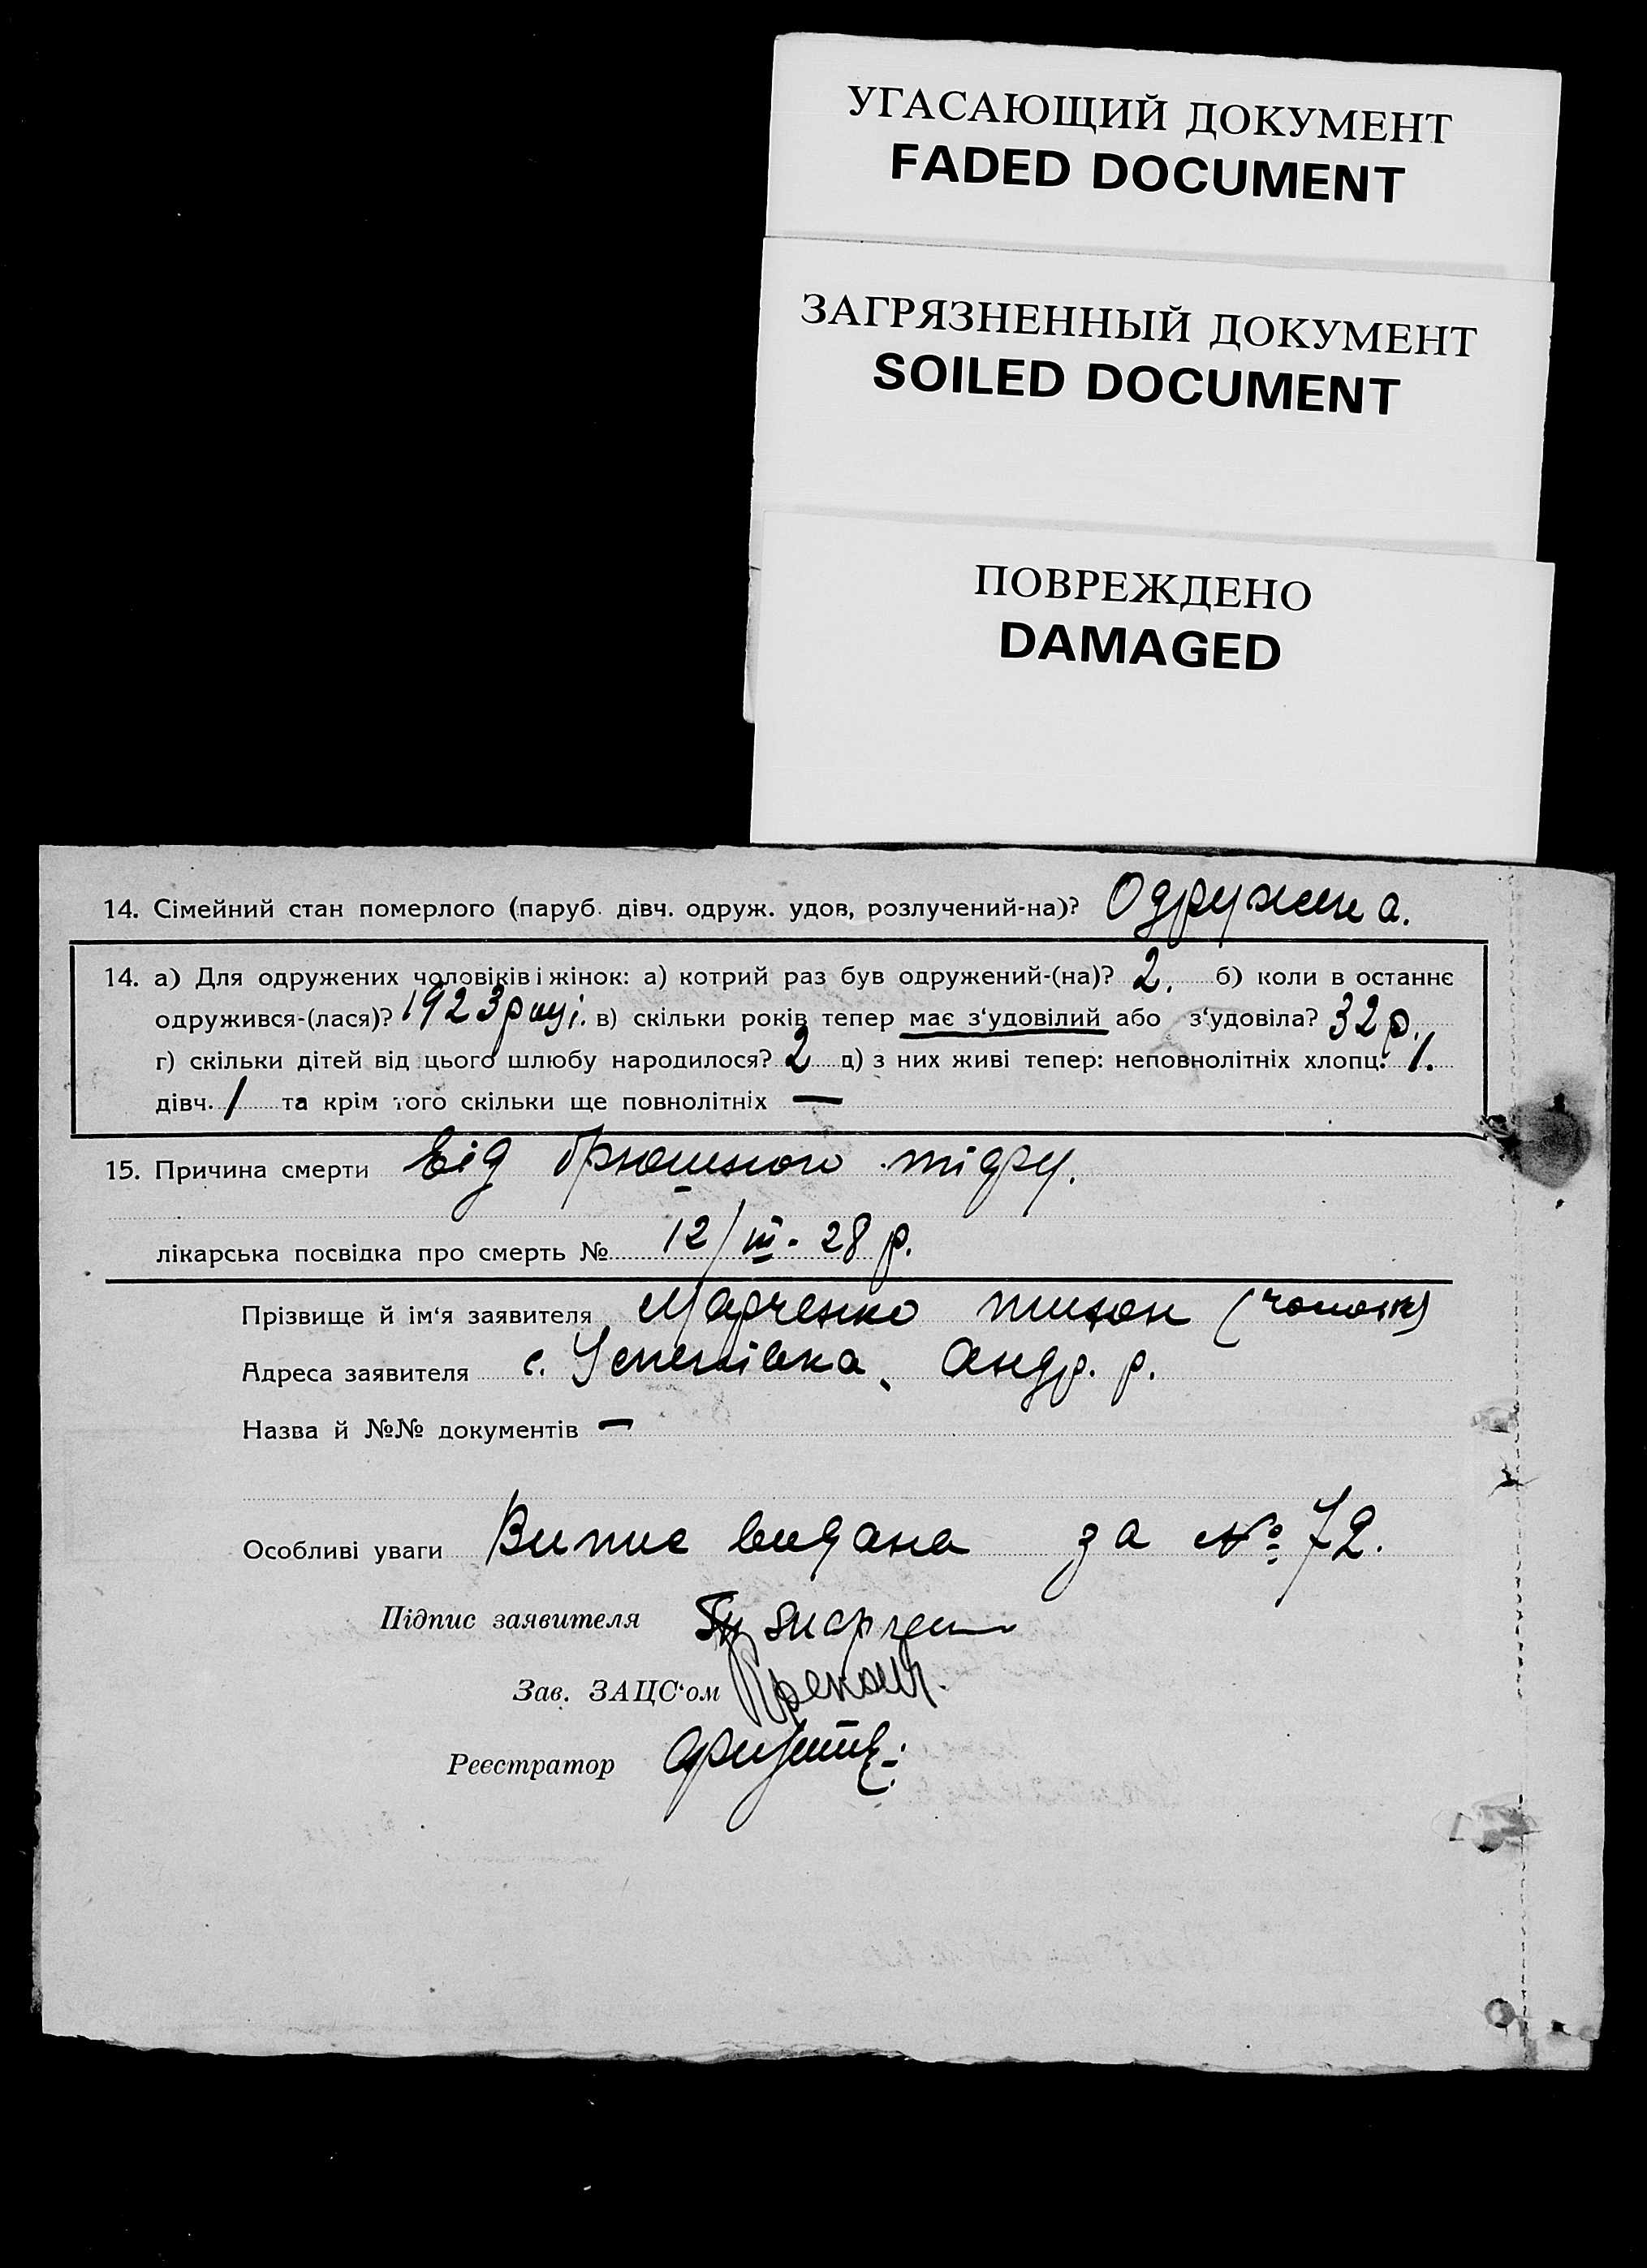 УГАСАЮЩИЙ ДОКУМЕНТ
FADED DOCUMENT
ЗАГРЯЗНЕННЫЙ ДОКУМЕНТ
SOILED DOCUMENT
ПОВРЕЖДЕНО
DAMAGED
14. Сімейний стан померлого (паруб. дівч. одруж. удов, розлучений-на)? Одружена.
14. а) Для одружених чоловіків і жінок: а) котрий раз був одружений-(на)? 2. б) коли в останнє
одружився-(лася)? 1923 році. в) скільки років тепер має з'удовілий або з'удовіла? 32 р.
г) скільки дітей від цього шлюбу народилося? 2 д) з них живі тепер: неповнолітніх хлопц. 1.
дівч. 1 та крім того скільки ще повнолітніх —
15. Причина смерти Від брюшного тіфу.
лікарська посвідка про смерть № 12/III - 28 р.
Прізвище й ім'я заявителя Марченко Тихон (чоловік)
Адреса заявителя с. Успенівка, Андр. р.
Назва й №№ документів —
Особливі уваги Випис видана за № 72.
Підпис заявителя
Зав. ЗАЦС'ом
Реєстратор